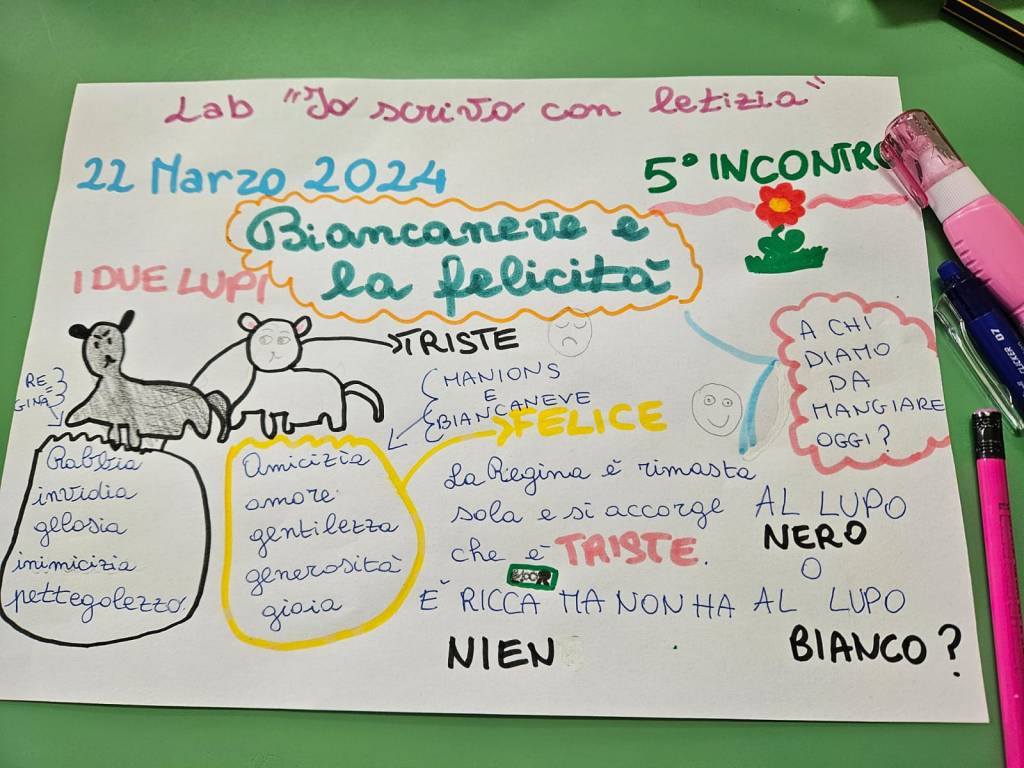 Lab "Io scrivo con letizia"
22 Marzo 2024
5° INCONTRO
Biancaneve e
la felicità
I DUE LUPI
TRISTE
RE
GINA
MANIONS
E
BIANCANEVE
FELICE
Rabbia
invidia
gelosia
inimicizia
pettegolezzo.
Amicizia
amore
gentilezza
generosità
gioia
La Regina è rimasta
sola e si accorge
che è TRISTE.
È RICCA MA NON HA
NIEN
A CHI
DIAMO
DA
MANGIARE
OGGI?
AL LUPO
NERO
O
AL LUPO
BIANCO?
07